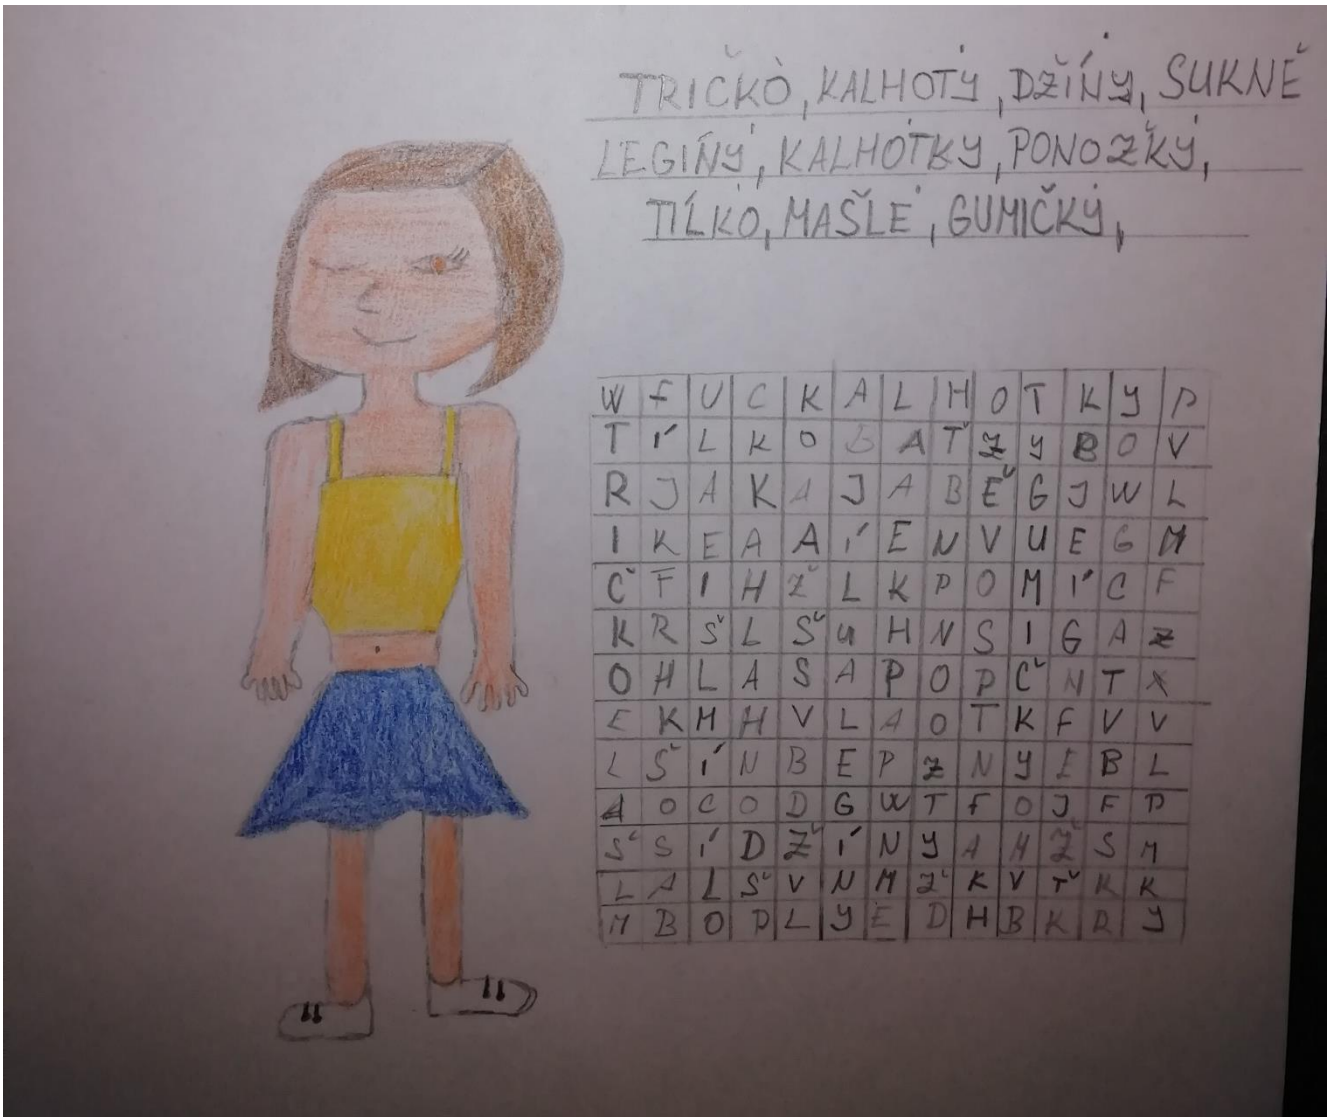 TRIČKO, KALHOTY, DŽÍNY, SUKNĚ
LEGÍNY, KALHOTKY, PONOŽKY,
TÍLKO, MAŠLE, GUMIČKY,
W F U C K A L H O T K Y P
T Í L K O B A Ť Z Y B O V
R J A K A J A B Ě G J W L
I K E A A Í E N V U E G M
Č F I H Ž L K P O M Í C F
K R Š L Š U H N S I G A Z
O H L A S A P O P Č N T X
E K M H V L A O T K F V V
L Š Í N B E P Z N Y E B L
A O C O D G W T F O J F P
Š S Í D Ž Í N Y A H Ž S M
L A L Š V N M Ž K V Ť K K
M B O P L Y E D H B K R Y